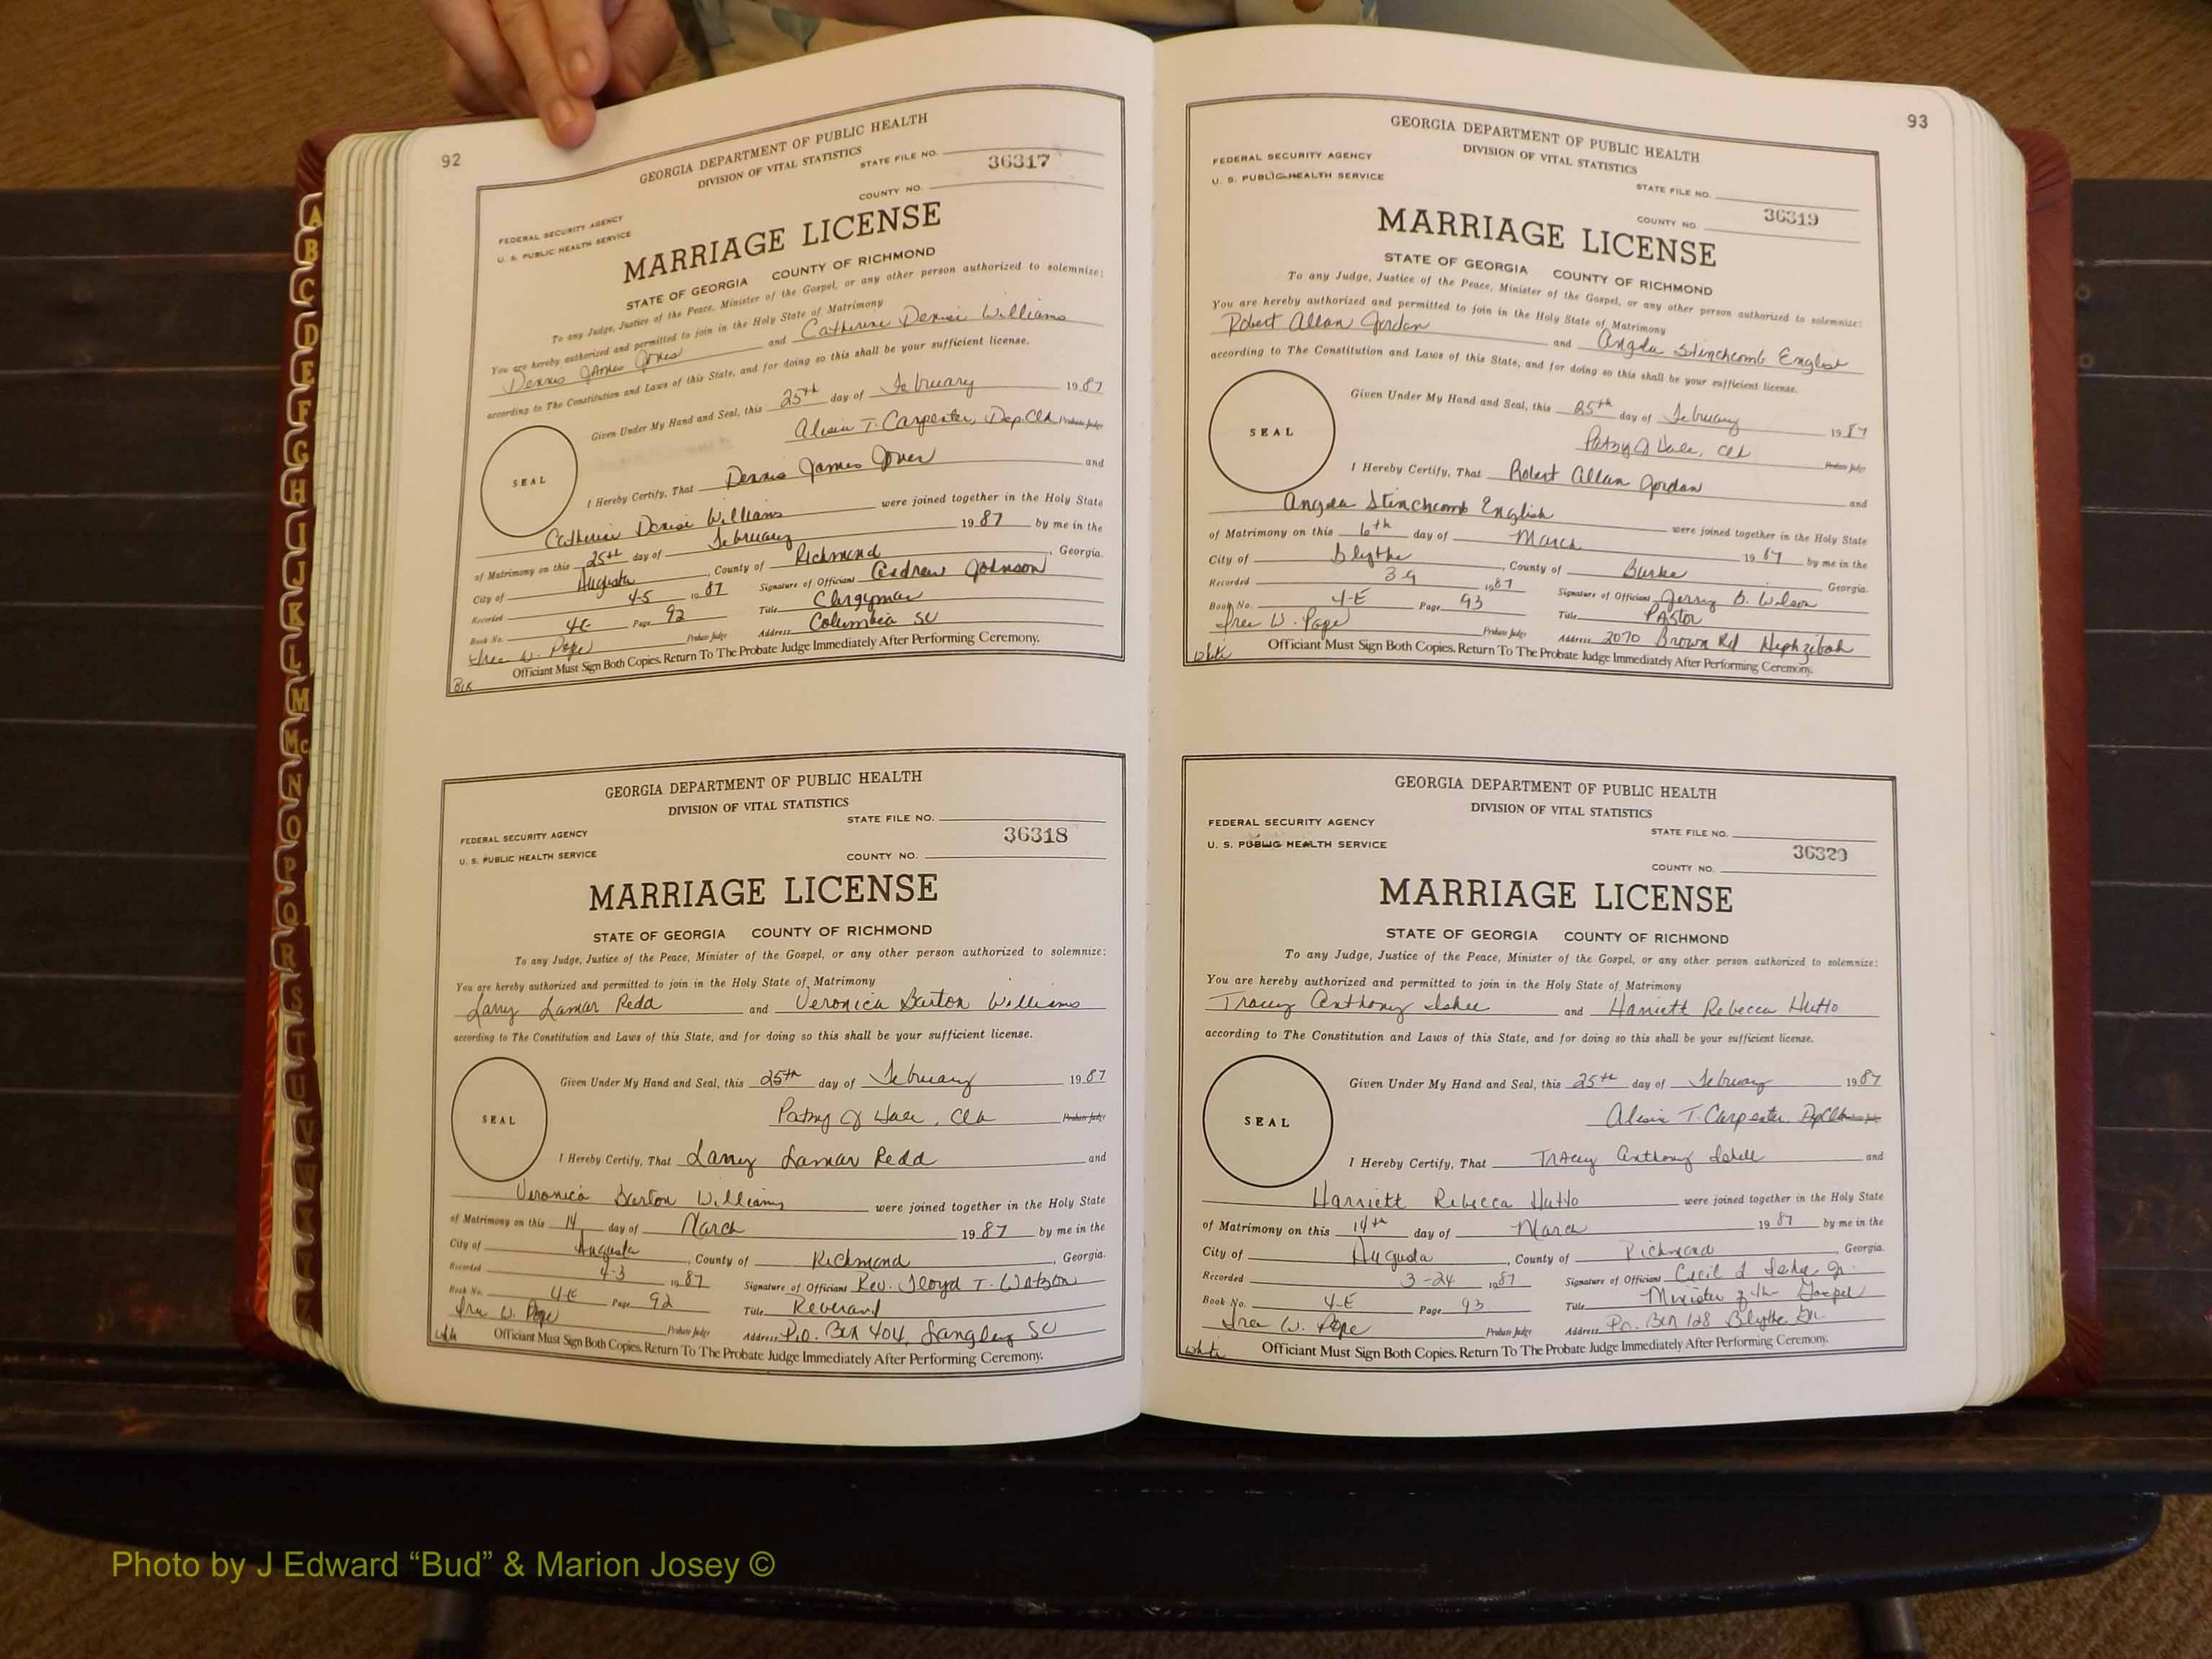 92
GEORGIA DEPARTMENT OF PUBLIC HEALTH
DIVISION OF VITAL STATISTICS
STATE FILE NO.
36317
FEDERAL SECURITY AGENCY
U. S. PUBLIC HEALTH SERVICE
COUNTY NO.
MARRIAGE LICENSE
STATE OF GEORGIA COUNTY OF RICHMOND
To any Judge, Justice of the Peace, Minister of the Gospel, or any other person authorized to solemnize:
You are hereby authorized and permitted to join in the Holy State of Matrimony
Dennis James Jones and Catherine Denise Williams
according to The Constitution and Laws of this State, and for doing so this shall be your sufficient license.
Given Under My Hand and Seal, this 25th day of February 1987
T. Carpenter, Dep. Clk Probate Judge
SEAL
I Hereby Certify, That Dennis James Jones and
Catherine Denise Williams were joined together in the Holy State
of Matrimony on this 25th day of February 1987 by me in the
City of Augusta, County of Richmond, Georgia.
Recorded 4-5 1987 Signature of Officiant Andrew Johnson
Book No. 4E Page 92 Title Clergyman
W. Pope Probate Judge Address Columbia SC
Officiant Must Sign Both Copies. Return To The Probate Judge Immediately After Performing Ceremony.
Blk
GEORGIA DEPARTMENT OF PUBLIC HEALTH
DIVISION OF VITAL STATISTICS
STATE FILE NO.
36318
FEDERAL SECURITY AGENCY
U. S. PUBLIC HEALTH SERVICE
COUNTY NO.
MARRIAGE LICENSE
STATE OF GEORGIA COUNTY OF RICHMOND
To any Judge, Justice of the Peace, Minister of the Gospel, or any other person authorized to solemnize:
You are hereby authorized and permitted to join in the Holy State of Matrimony
Larry Lamar Redd and Veronica Barton Williams
according to The Constitution and Laws of this State, and for doing so this shall be your sufficient license.
Given Under My Hand and Seal, this 25th day of February 1987
Patsy J Hall, Clk Probate Judge
SEAL
I Hereby Certify, That Larry Lamar Redd and
Veronica Barton Williams were joined together in the Holy State
of Matrimony on this 14 day of March 1987 by me in the
City of Augusta, County of Richmond, Georgia.
Recorded 4-3 1987 Signature of Officiant Rev. Floyd T. Watson
Book No. 4-E Page 92 Title Reverand
W. Pope Probate Judge Address P.O. Box 404, Langley SC
white Officiant Must Sign Both Copies. Return To The Probate Judge Immediately After Performing Ceremony.
93
GEORGIA DEPARTMENT OF PUBLIC HEALTH
DIVISION OF VITAL STATISTICS
FEDERAL SECURITY AGENCY
U. S. PUBLIC HEALTH SERVICE
STATE FILE NO.
36319
COUNTY NO.
MARRIAGE LICENSE
STATE OF GEORGIA COUNTY OF RICHMOND
To any Judge, Justice of the Peace, Minister of the Gospel, or any other person authorized to solemnize:
You are hereby authorized and permitted to join in the Holy State of Matrimony
Robert Allan Jordan and Angela Stinchcomb English
according to The Constitution and Laws of this State, and for doing so this shall be your sufficient license.
Given Under My Hand and Seal, this 25th day of February 1987
Patsy J Hall, Clk Probate Judge
SEAL
I Hereby Certify, That Robert Allan Jordan and
Angela Stinchcomb English were joined together in the Holy State
of Matrimony on this 6th day of March 1987 by me in the
City of Blythe, County of Burke, Georgia.
Recorded 3-9 1987 Signature of Officiant Jerry B. Wilson
Book No. 4-E Page 93 Title Pastor
W. Pope Probate Judge Address 2070 Brown Rd Hephzibah
white Officiant Must Sign Both Copies. Return To The Probate Judge Immediately After Performing Ceremony.
GEORGIA DEPARTMENT OF PUBLIC HEALTH
DIVISION OF VITAL STATISTICS
FEDERAL SECURITY AGENCY
STATE FILE NO.
U. S. PUBLIC HEALTH SERVICE
36320
COUNTY NO.
MARRIAGE LICENSE
STATE OF GEORGIA COUNTY OF RICHMOND
To any Judge, Justice of the Peace, Minister of the Gospel, or any other person authorized to solemnize:
You are hereby authorized and permitted to join in the Holy State of Matrimony
Tracey Anthony and Harriett Rebecca Hutto
according to The Constitution and Laws of this State, and for doing so this shall be your sufficient license.
Given Under My Hand and Seal, this 25th day of February 1987
T. Carpenter Dep Clk Probate Judge
SEAL
I Hereby Certify, That Tracey Anthony and
Harriett Rebecca Hutto were joined together in the Holy State
of Matrimony on this 14th day of March 1987 by me in the
City of Augusta, County of Richmond, Georgia.
Recorded 3-24 1987 Signature of Officiant Cecil Jr.
Book No. 4-E Page 93 Title Minister of the Gospel
W. Pope Probate Judge Address P.O. Box 128 Blythe Ga.
white Officiant Must Sign Both Copies. Return To The Probate Judge Immediately After Performing Ceremony.
A
B
C
D
E
F
G
H
I
J
K
L
M
Mc
N
O
P
Q
R
S
T
U
Photo by J Edward “Bud” & Marion Josey ©